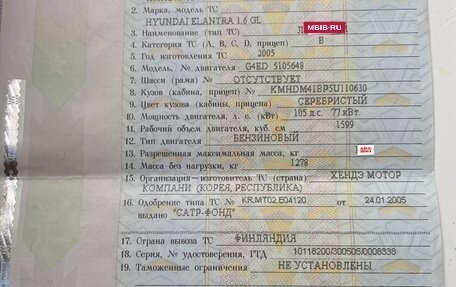 2. Марка, модель ТС
HYUNDAI ELANTRA 1.6 GL
3. Наименование (тип ТС)
MBIB·RU
4. Категория ТС (A, B, C, D, прицеп) B
5. Год изготовления ТС 2005
6. Модель, № двигателя G4ED 5105648
7. Шасси (рама) № ОТСУТСТВУЕТ
8. Кузов (кабина, прицеп) № KMHDM41BP5U110630
9. Цвет кузова (кабины, прицепа) СЕРЕБРИСТЫЙ
10. Мощность двигателя, л. с. (кВт) 105 л.с. 77кВт
11. Рабочий объем двигателя, куб. см 1599
12. Тип двигателя БЕНЗИНОВЫЙ
13. Разрешенная максимальная масса, кг
14. Масса без нагрузки, кг 1278
15. Организация—изготовитель ТС (страна) ХЕНДЭ МОТОР
КОМПАНИ (КОРЕЯ, РЕСПУБЛИКА)
16. Одобрение типа ТС № KR.MT02.E04120 от 24.01.2005
выдано "САТР-ФОНД"
17. Страна вывоза ТС ФИНЛЯНДИЯ
18. Серия, № удостоверения, ГТД 10118200/300505/0008338
19. Таможенные ограничения НЕ УСТАНОВЛЕНЫ